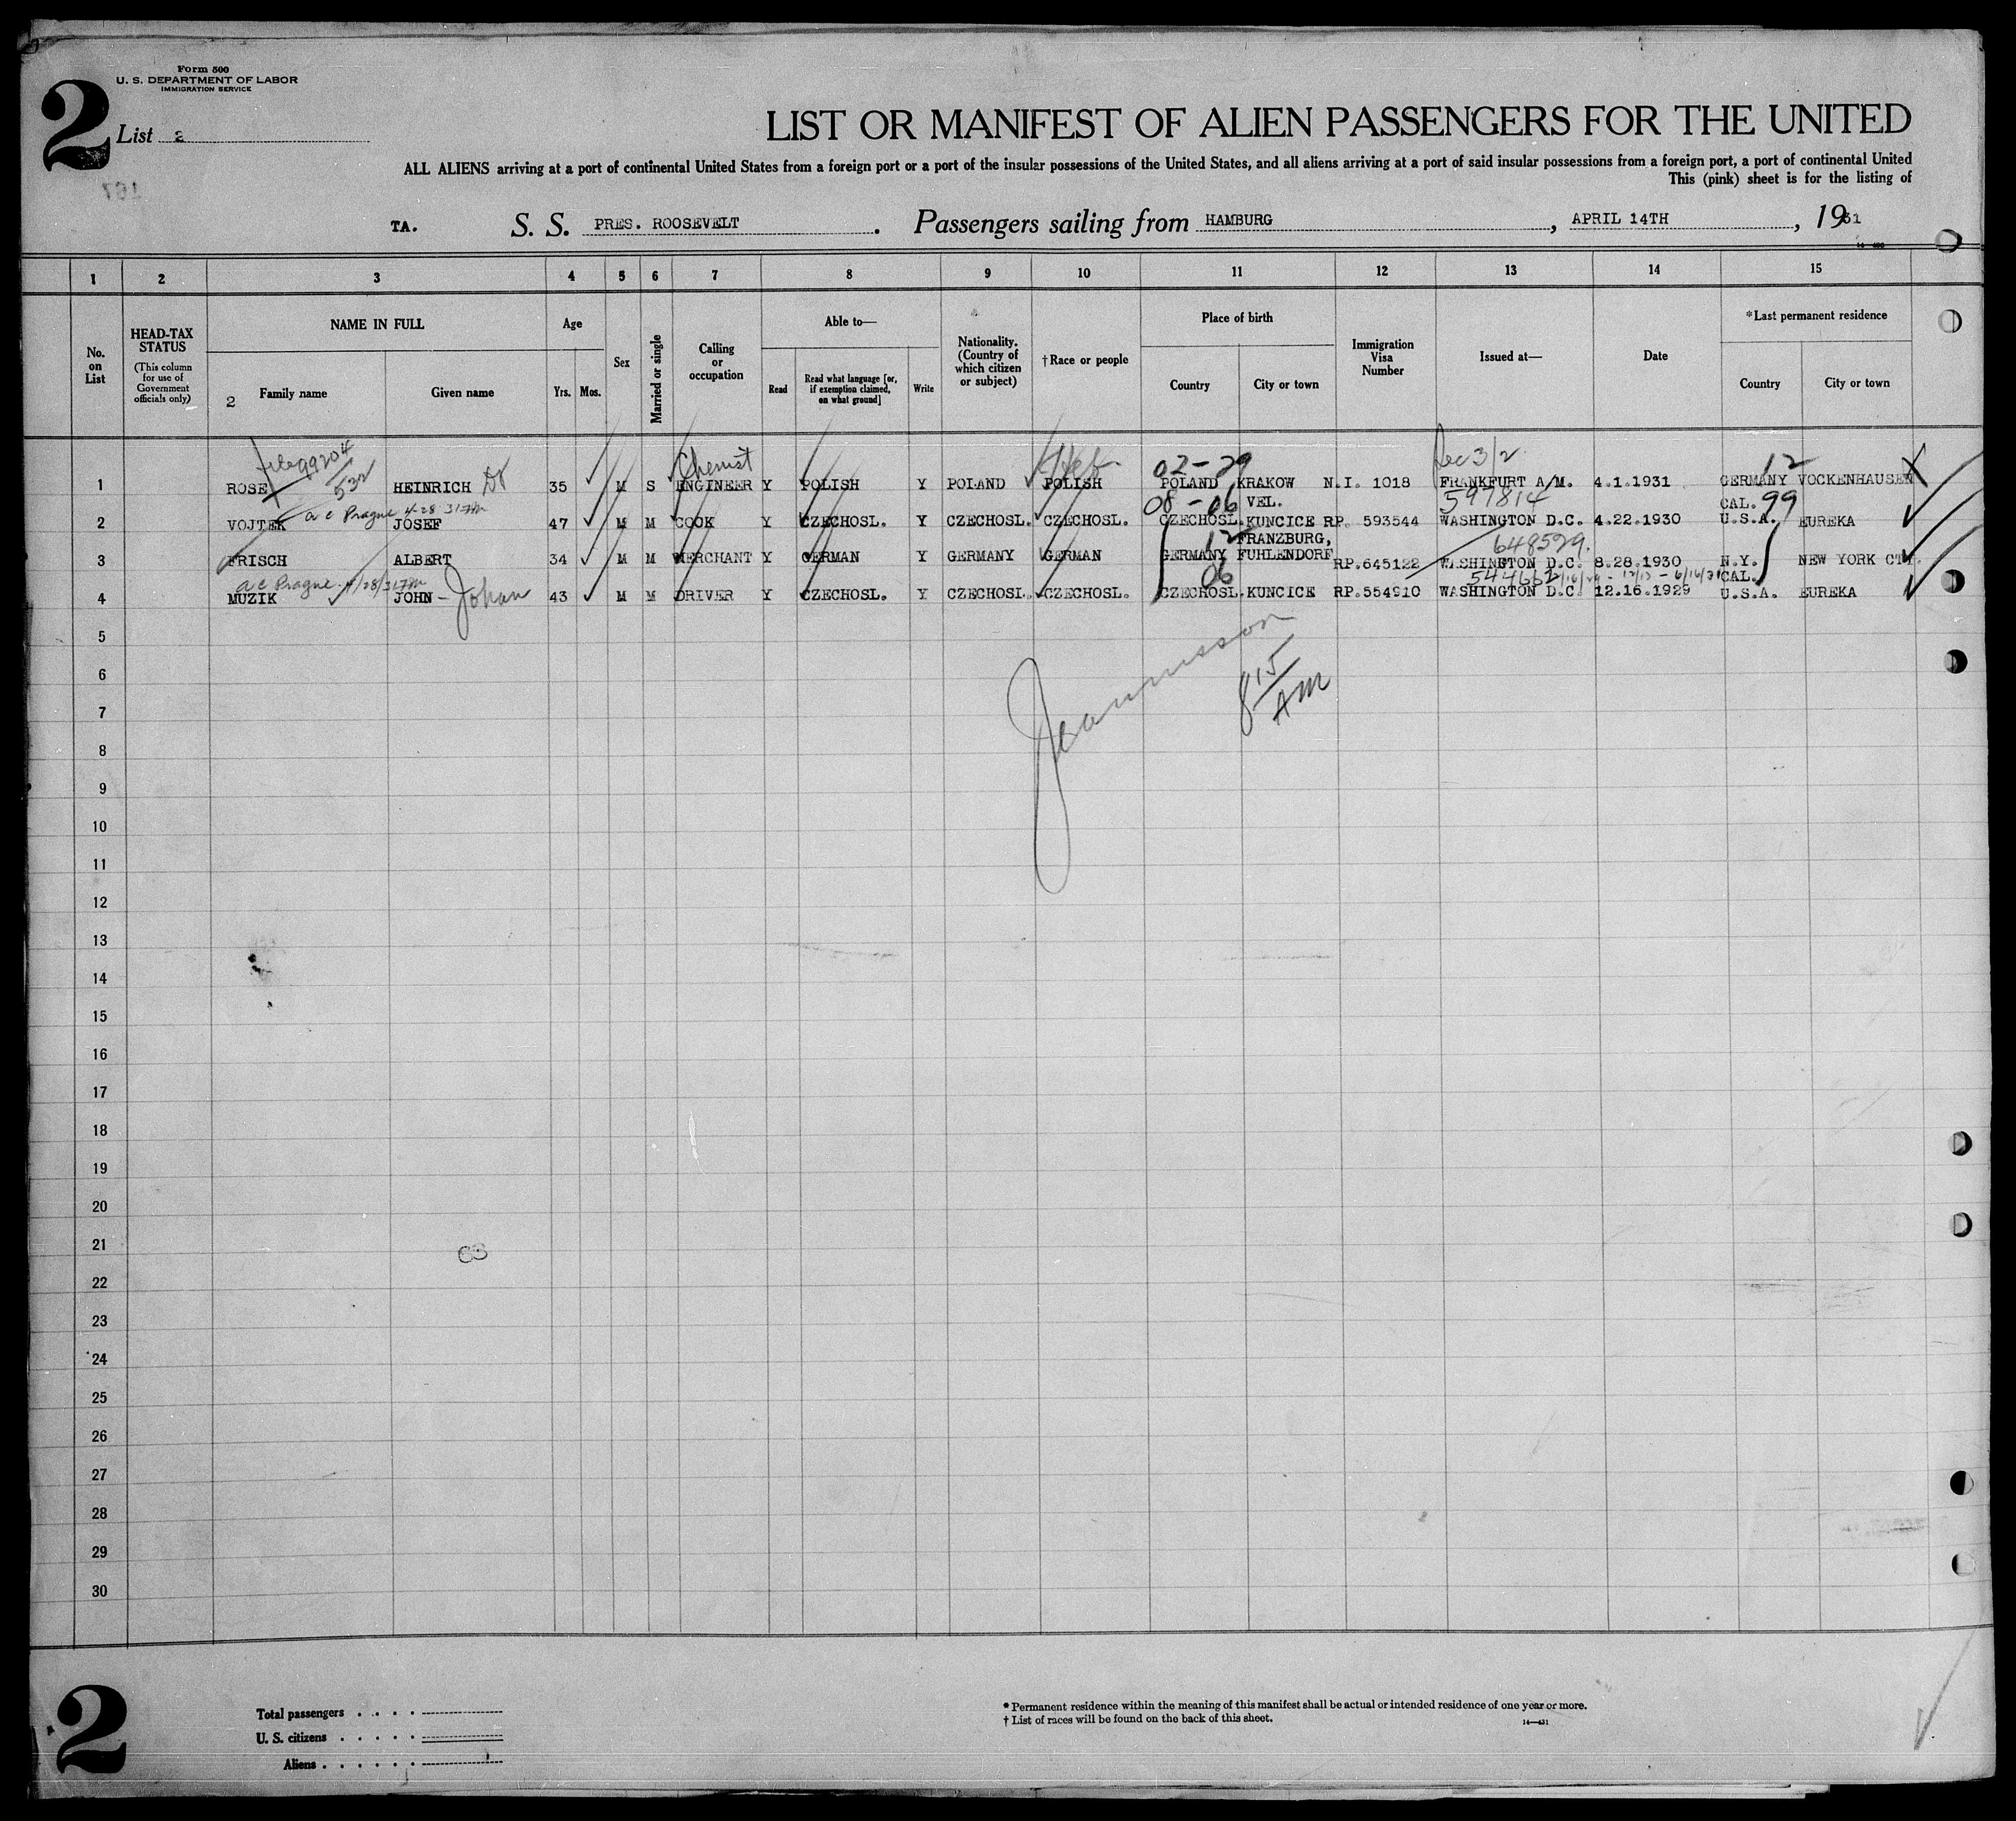 Form 500
U. S. DEPARTMENT OF LABOR
IMMIGRATION SERVICE
2
List 2
LIST OR MANIFEST OF ALIEN PASSENGERS FOR THE UNITED
ALL ALIENS arriving at a port of continental United States from a foreign port or a port of the insular possessions of the United States, and all aliens arriving at a port of said insular possessions from a foreign port, a port of continental United
This (pink) sheet is for the listing of
TA. S. S. PRES. ROOSEVELT. Passengers sailing from HAMBURG, APRIL 14TH, 1931
1 2 3 4 5 6 7 8 9 10 11 12 13 14 15
No. on List
HEAD-TAX STATUS
(This column for use of Government officials only)
NAME IN FULL
2 Family name Given name
Age
Yrs. Mos.
Sex
Married or single
Calling or occupation
Able to—
Read
Read what language [or, if exemption claimed, on what ground]
Write
Nationality. (Country of which citizen or subject)
†Race or people
Place of birth
Country City or town
Immigration Visa Number
Issued at—
Date
*Last permanent residence
Country City or town
99204/532 Chemist Heb 02-29 Sec 3/2 12 X
1 ROSE HEINRICH Dr 35 M S ENGINEER Y POLISH Y POLAND POLISH POLAND KRAKOW N.I. 1018 FRANKFURT A/M. 4.1.1931 GERMANY VOCKENHAUSEN
a c Prague 4-28 31 08-06 VEL. 597814 CAL. 99
2 VOJTEK JOSEF 47 M M COOK Y CZECHOSL. Y CZECHOSL. CZECHOSL. CZECHOSL. KUNCICE RP. 593544 WASHINGTON D.C. 4.22.1930 U.S.A. EUREKA
12 FRANZBURG, 648529.
3 FRISCH ALBERT 34 M M MERCHANT Y GERMAN Y GERMANY GERMAN GERMANY FUHLENDORF RP.645122 WASHINGTON D.C. 8.28.1930 N.Y. NEW YORK CTY.
a c Prague 4/28/31 06 544662 CAL.
4 MUZIK JOHN - Johan 43 M M DRIVER Y CZECHOSL. Y CZECHOSL. CZECHOSL. CZECHOSL. KUNCICE RP.554910 WASHINGTON D.C. 12.16.1929 U.S.A. EUREKA
5
6
8 15/AM
7
8
9
10
11
12
13
14
15
16
17
18
19
20
21
63
22
23
24
25
26
27
28
29
30
2
Total passengers
U. S. citizens
Aliens
* Permanent residence within the meaning of this manifest shall be actual or intended residence of one year or more.
† List of races will be found on the back of this sheet.